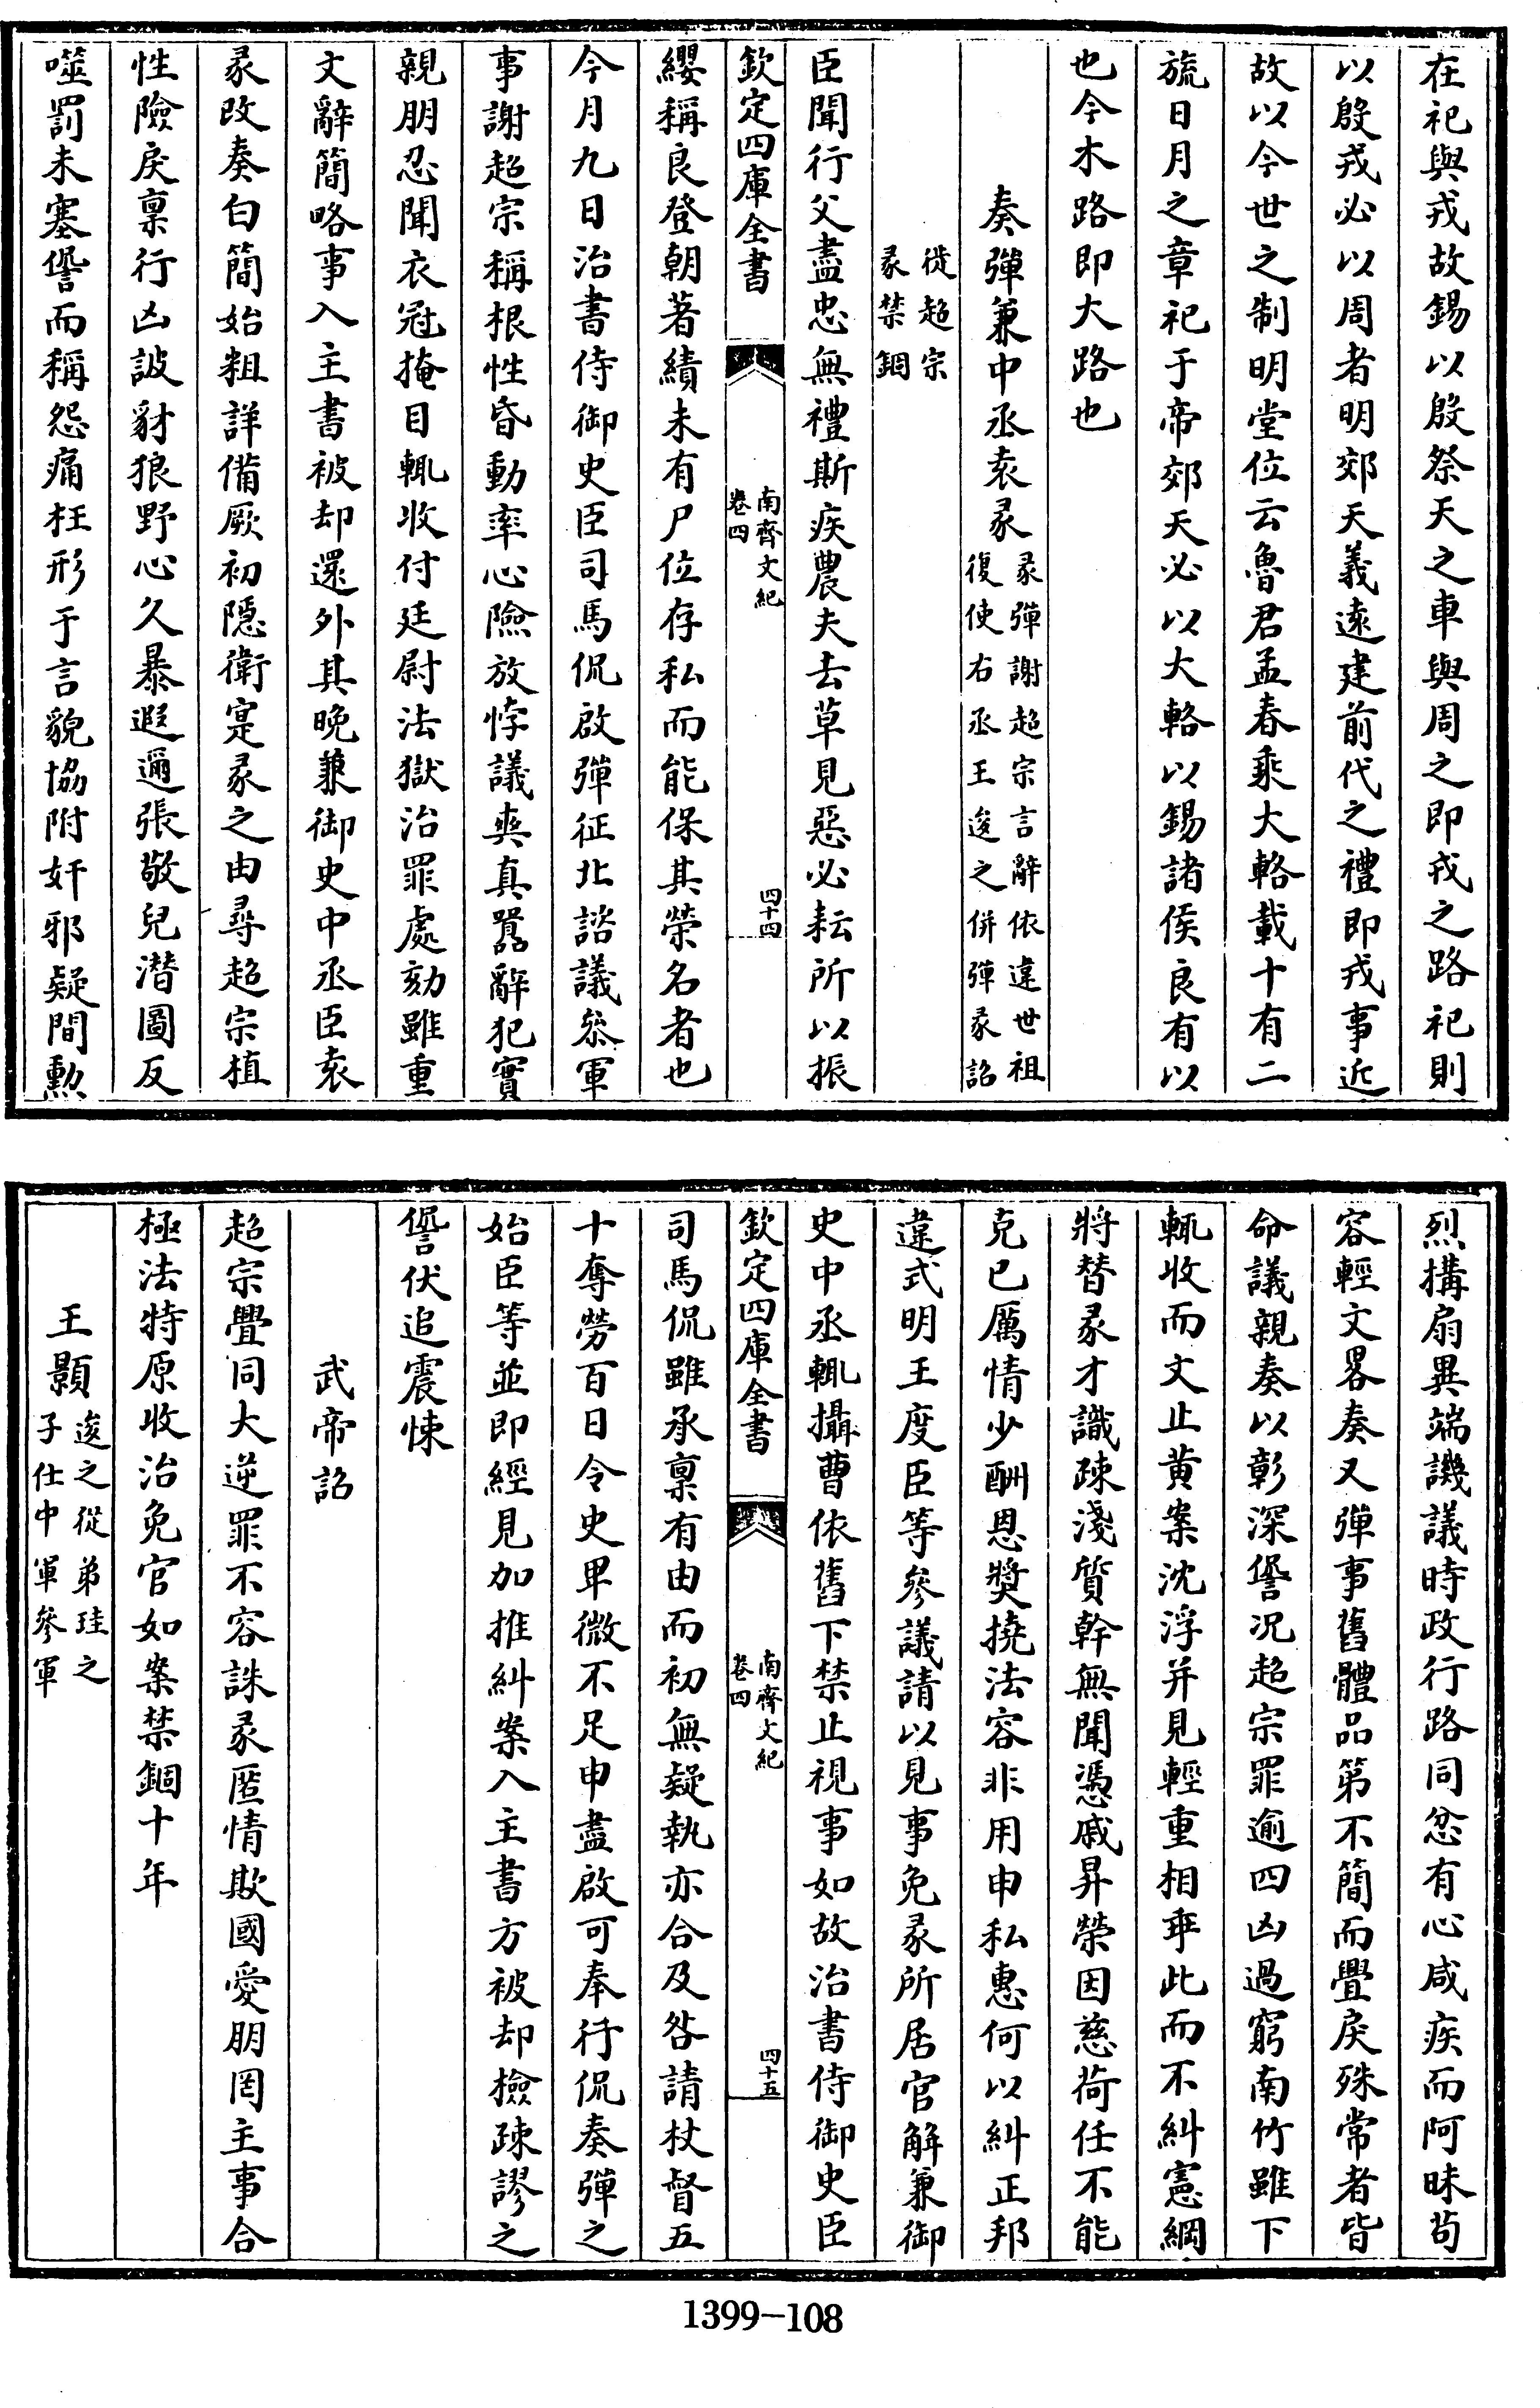 在祀與戎故錫以殷祭天之車與周之即戎之路祀則
以殷戎必以周者明郊天義遠建前代之禮即戎事近
故以今世之制明堂位云魯君孟春乘大輅載十有二
旒日月之章祀于帝郊天必以大輅以錫諸侯良有以
也今木路即大路也
奏彈兼中丞袁彖
彖彈謝超宗言辭依違世祖
復使右丞王逡之併彈彖詔
徙超宗
彖禁錮
臣聞行父盡忠無禮斯疾農夫去草見惡必耘所以振
欽定四庫全書
南齊文紀
卷四
四十四
纓稱良登朝著績未有尸位存私而能保其榮名者也
今月九日治書侍御史臣司馬侃啟彈征北諮議參軍
事謝超宗稱根性昏動率心險放悖議爽真囂辭犯實
親朋忍聞衣冠掩目輒收付廷尉法獄治罪處劾雖重
文辭簡略事入主書被却還外其晚兼御史中丞臣袁
彖改奏白簡始粗詳備厥初隱衛寔彖之由尋超宗植
性險戾稟行凶詖豺狼野心久暴遐邇張敬兒潛圖反
噬罰未塞諐而稱怨痛枉形于言貌協附奸邪疑間勲
烈搆扇異端譏議時政行路同忿有心咸疾而阿昧苟
容輕文畧奏又彈事舊體品第不簡而亹戾殊常者皆
命議親奏以彰深諐況超宗罪逾四凶過窮南竹雖下
輒收而文止黃案沈浮并見輕重相乖此而不糾憲綱
將替彖才識疎淺質幹無聞憑戚昇榮因慈荷任不能
克已厲情少酬恩獎撓法容非用申私惠何以糾正邦
違式明王度臣等參議請以見事免彖所居官解兼御
史中丞輒攝曹依舊下禁止視事如故治書侍御史臣
欽定四庫全書
南齊文紀
卷四
四十五
司馬侃雖承稟有由而初無疑執亦合及咎請杖督五
十奪勞百日令史卑微不足申盡啟可奉行侃奏彈之
始臣等並即經見加推糾案入主書方被却檢疎謬之
諐伏追震悚
武帝詔
超宗亹同大逆罪不容誅彖匿情欺國愛朋罔主事合
極法特原收治免官如案禁錮十年
王顥
逡之從弟珪之
子仕中軍參軍
1399-108